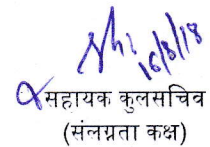 16/8/18
सहायक कुलसचिव
(संलग्नता कक्ष)